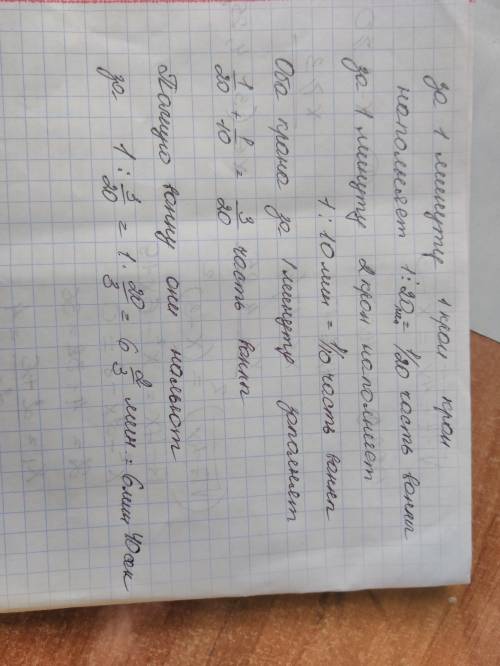 за 1 минуту 1 кран кран
наполняет 1:20мин = 1/20 часть ванны
за 1 минуту 2 кран наполняет
1:10 мин = 1/10 часть ванны
Оба крана за 1 минуту заполнят
1/20 + 1/10 = 3/20 часть ванны
Полную ванну они нальют
за 1 : 3/20 = 1 · 20/3 = 6 2/3 мин = 6 мин 40 сек